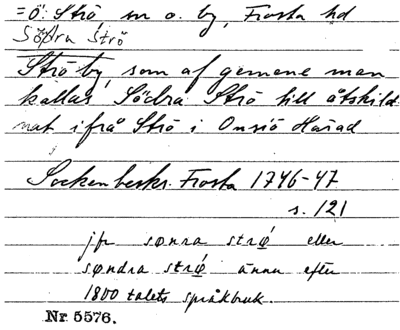 = Ö. Strö sn o. by, Frosta hd
Södra Strö
Strö by, som af gemene man
kallas Södra Strö till åtskild
nat ifrå Strö i Onsiö Härad
Sockenbeskr. Frosta 1746-47
s. 121
jfr sønra strǿ eller
søndra strǿ ännu efter
1800 talets språkbruk.
Nr 5576.